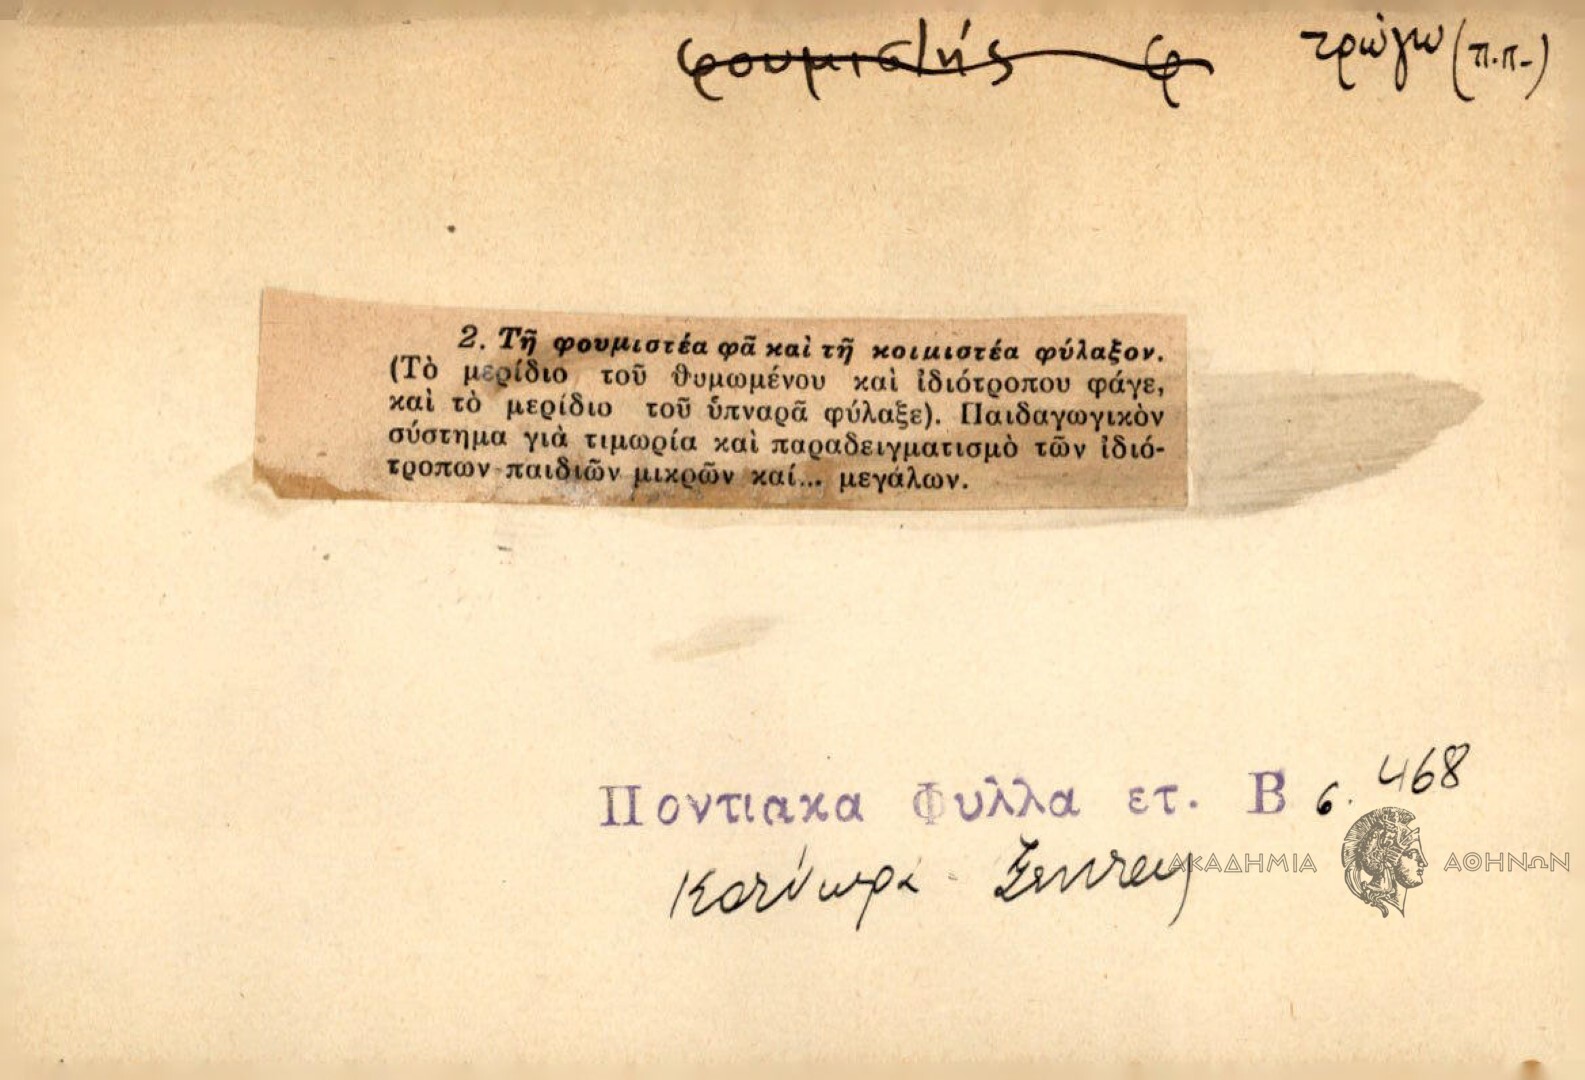 φουμιστής φ τρώγω (π.π.)
2. Τῆ φουμιστέα φᾶ καὶ τῆ κοιμιστέα φύλαξον.
(Τὸ μερίδιο τοῦ θυμωμένου καὶ ἰδιότροπου φάγε,
καὶ τὸ μερίδιο τοῦ ὑπναρᾶ φύλαξε). Παιδαγωγικὸν
σύστημα γιὰ τιμωρία καὶ παραδειγματισμὸ τῶν ἰδιό-
τροπων παιδιῶν μικρῶν καί... μεγάλων.
Ποντιακα Φυλλα ετ. Β σ. 468
Κοτύωρα
ΑΚΑΔΗΜΙΑ ΑΘΗΝΩΝ